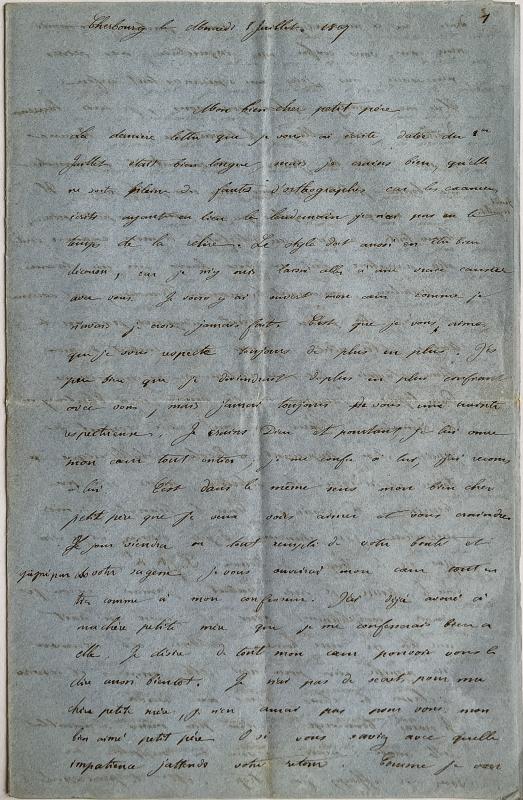 4
Cherbourg le Mercredi 8 Juillet. 18
Mon bien cher petit père
La dernière lettre que je vous ai écrite datée du 1er
Juillet était bien longue, mais je crains bien qu'elle
ne soit pleine de fautes d'orthographes car les examens
écrits ayant eu lieu le lendemain je n'ai pas eu le
temps de la relire. Le style doit aussi en être bien
décousu, car je m'y suis laissé aller à une vraie causerie
avec vous. Je vous y ai ouvert mon cœur comme je
n'avais je crois jamais fait. C'est que je vous aime,
que je vous respecte toujours de plus en plus. J'es
père bien que je deviendrai de plus en plus confiant
avec vous, mais jamais toujours de vous une crainte
respectueuse. Je crains Dieu et pourtant je lui ouvre
mon cœur tout entier, je me confie à lui, j'ai recours
à lui C'est dans le même sens mon bien cher
petit père que je veux vous aimer et vous craindre
Le jour viendra où tout rempli de votre bonté et
de votre sagesse je vous ouvrirai mon cœur tout en
tier comme à mon confesseur. J'ai déjà avoué à
ma chère petite mère que je me confesserais bien à
elle. Je désire de tout mon cœur pouvoir vous le
dire aussi bientôt. Je n'ai pas de secrets pour ma
chère petite mère, je n'en aurai pas pour vous, mon
bien aimé petit père O si vous saviez avec quelle
impatience j'attends votre retour. Comme je vous